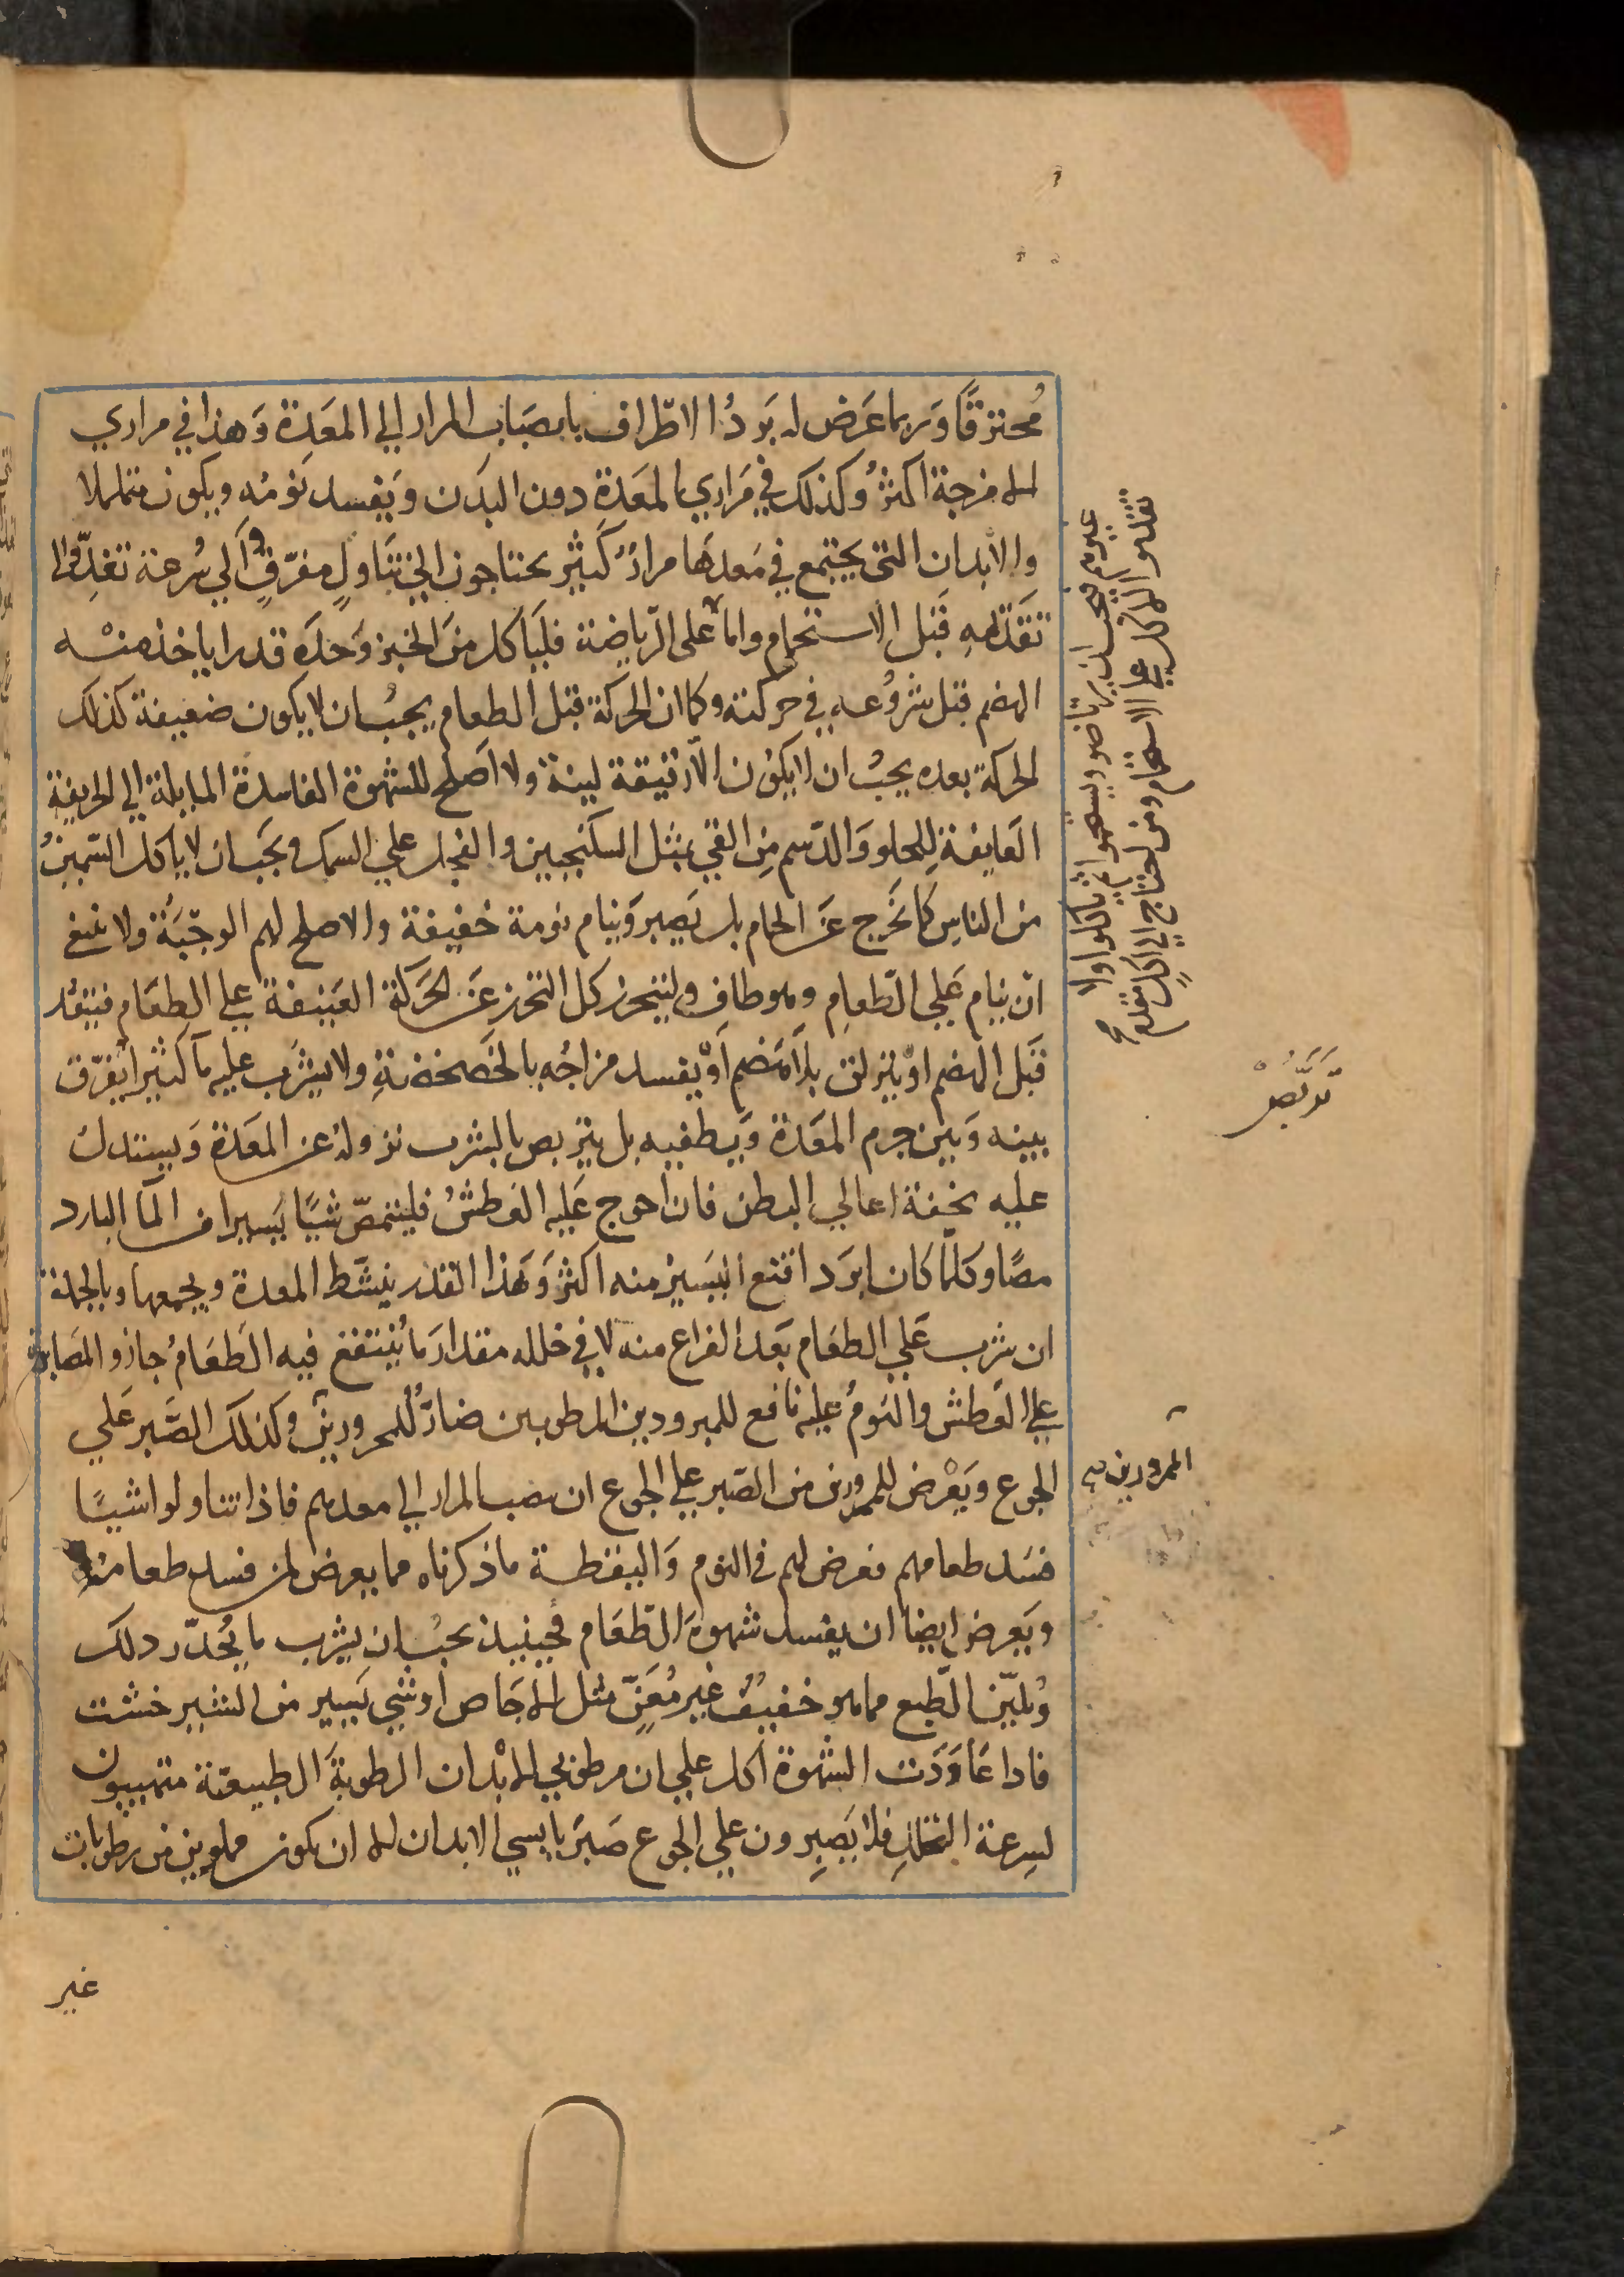 مُحترقًا وَربما عَرض له بَردُ الاطراف بانصَباب المرار الي المعَدِة وَهذا في مراري
الامزجة اكثرُ وكذلك في مَراري المعَدة دون البدَن وَيَفسد نَومُه ويكون متململا
والأبدان التي يجتمع في مَعدهَا مرارُ كَثير يحتاجون الي تَناولٍ مفرّقٍ وَالي سُرعة تغذِّ والي
تَقَدّمهِ قَبل الاستحمام واما على الرّياضة فليَاكل منَ الخبز وَحدَه قدرا ياخذ منْه
الهضم قبل شروُعه في حركته وكما ان الحركة قبل الطعام يجبُ ان لا يكون ضعيفة كذلك
الحركة بعده يجبُ ان لا يكوُن الاّ رقيقة لينة ولا اَصلح للشهوة الفاسدة المايلة الي الحريفة
العَايفةِ لِلحلو وَالدّسم مِن القي بمثل السكنجبين والفجل علي السمك ويجَب ان لا ياكل السّمينُ
من الناسِ كما يخَرج عَن الحمام بل يَصبر وَينام نومة خفيفة والاصلح لهم الوجبَة ولا ينبغ
ان ينام عَلي الطّعامِ وهو طافٍ وليتحرز كل التحرز عَن الحَركة العَنيفة علي الطعَام فينفُد
قَبل الهضم اوْ يزلق بلاَ هَضم اَوْ يفسد مزاجُه بالخَضخضةِ ولا يشرَب عليه مآ كثيرا يفرّق
بينه وَبين جرم المعَدة وَيطفيه بل يتربص بالشرب نزوله عن المعَدة وَيستدل
عليه بخفة اعالي البطن فان احوج عَليه العَطشُ فليتمصّ شيًا يَسيرا من المآ البارد
مصًا وكلمّا كان ابرَد اقنع اليَسيرُ منه اكثرَ وَهَذا القدر ينشّط المعدة ويجمعها وبالجملة
ان شرب عَلي الطعَام بَعد الفراغ منه لا في خلله مقدارَ مَا يُنتفع فيه الَطعَامُ جاز والمصَابرة
علي العَطش والنومُ عليه نافع للمبرودين المرطوبين ضارٌ للمحرورين وكذلك الصَّبر علي
الجوع ويَعْرض للممرورين من الصّبر علي الجوع ان ىصب المرار الي معدهم فاذا تناولوا شيًا
فسَد طعامهم فعرض لهم في النوم وَاليقظة ما ذكرناه مما يعرض لمن فسد طعامُه
ويَعرض ايضا ان يفسد شهوة الطّعَام فحينيذ يجبُ ان يشرب ما يُحدّر ذلك
وُيليّن الطّبع مما هو خفيفُ غير مُعَنٍّ مثل الاجَاص او شي يَسير من الشير خشت
فاذا عَاوَدَت الشّهوة اكل علي ان مرطوبي الابْدان الرطوبةَ الطبيعيّة متهييون
لسِرعة التحللِ فلا يَصِبرون علي الجوع صَبرَ يابسي الابدان الا ان يكونوا مملوين من رطوبات
غير
غيرهم فيجب ان يرتاضوا ويستحموا ثم ياكلوا ولا
يقدموا الاكل علي الاستحمام ومن احتاج الي اكل مقدم
تَرَبَّصْ
الممرورين